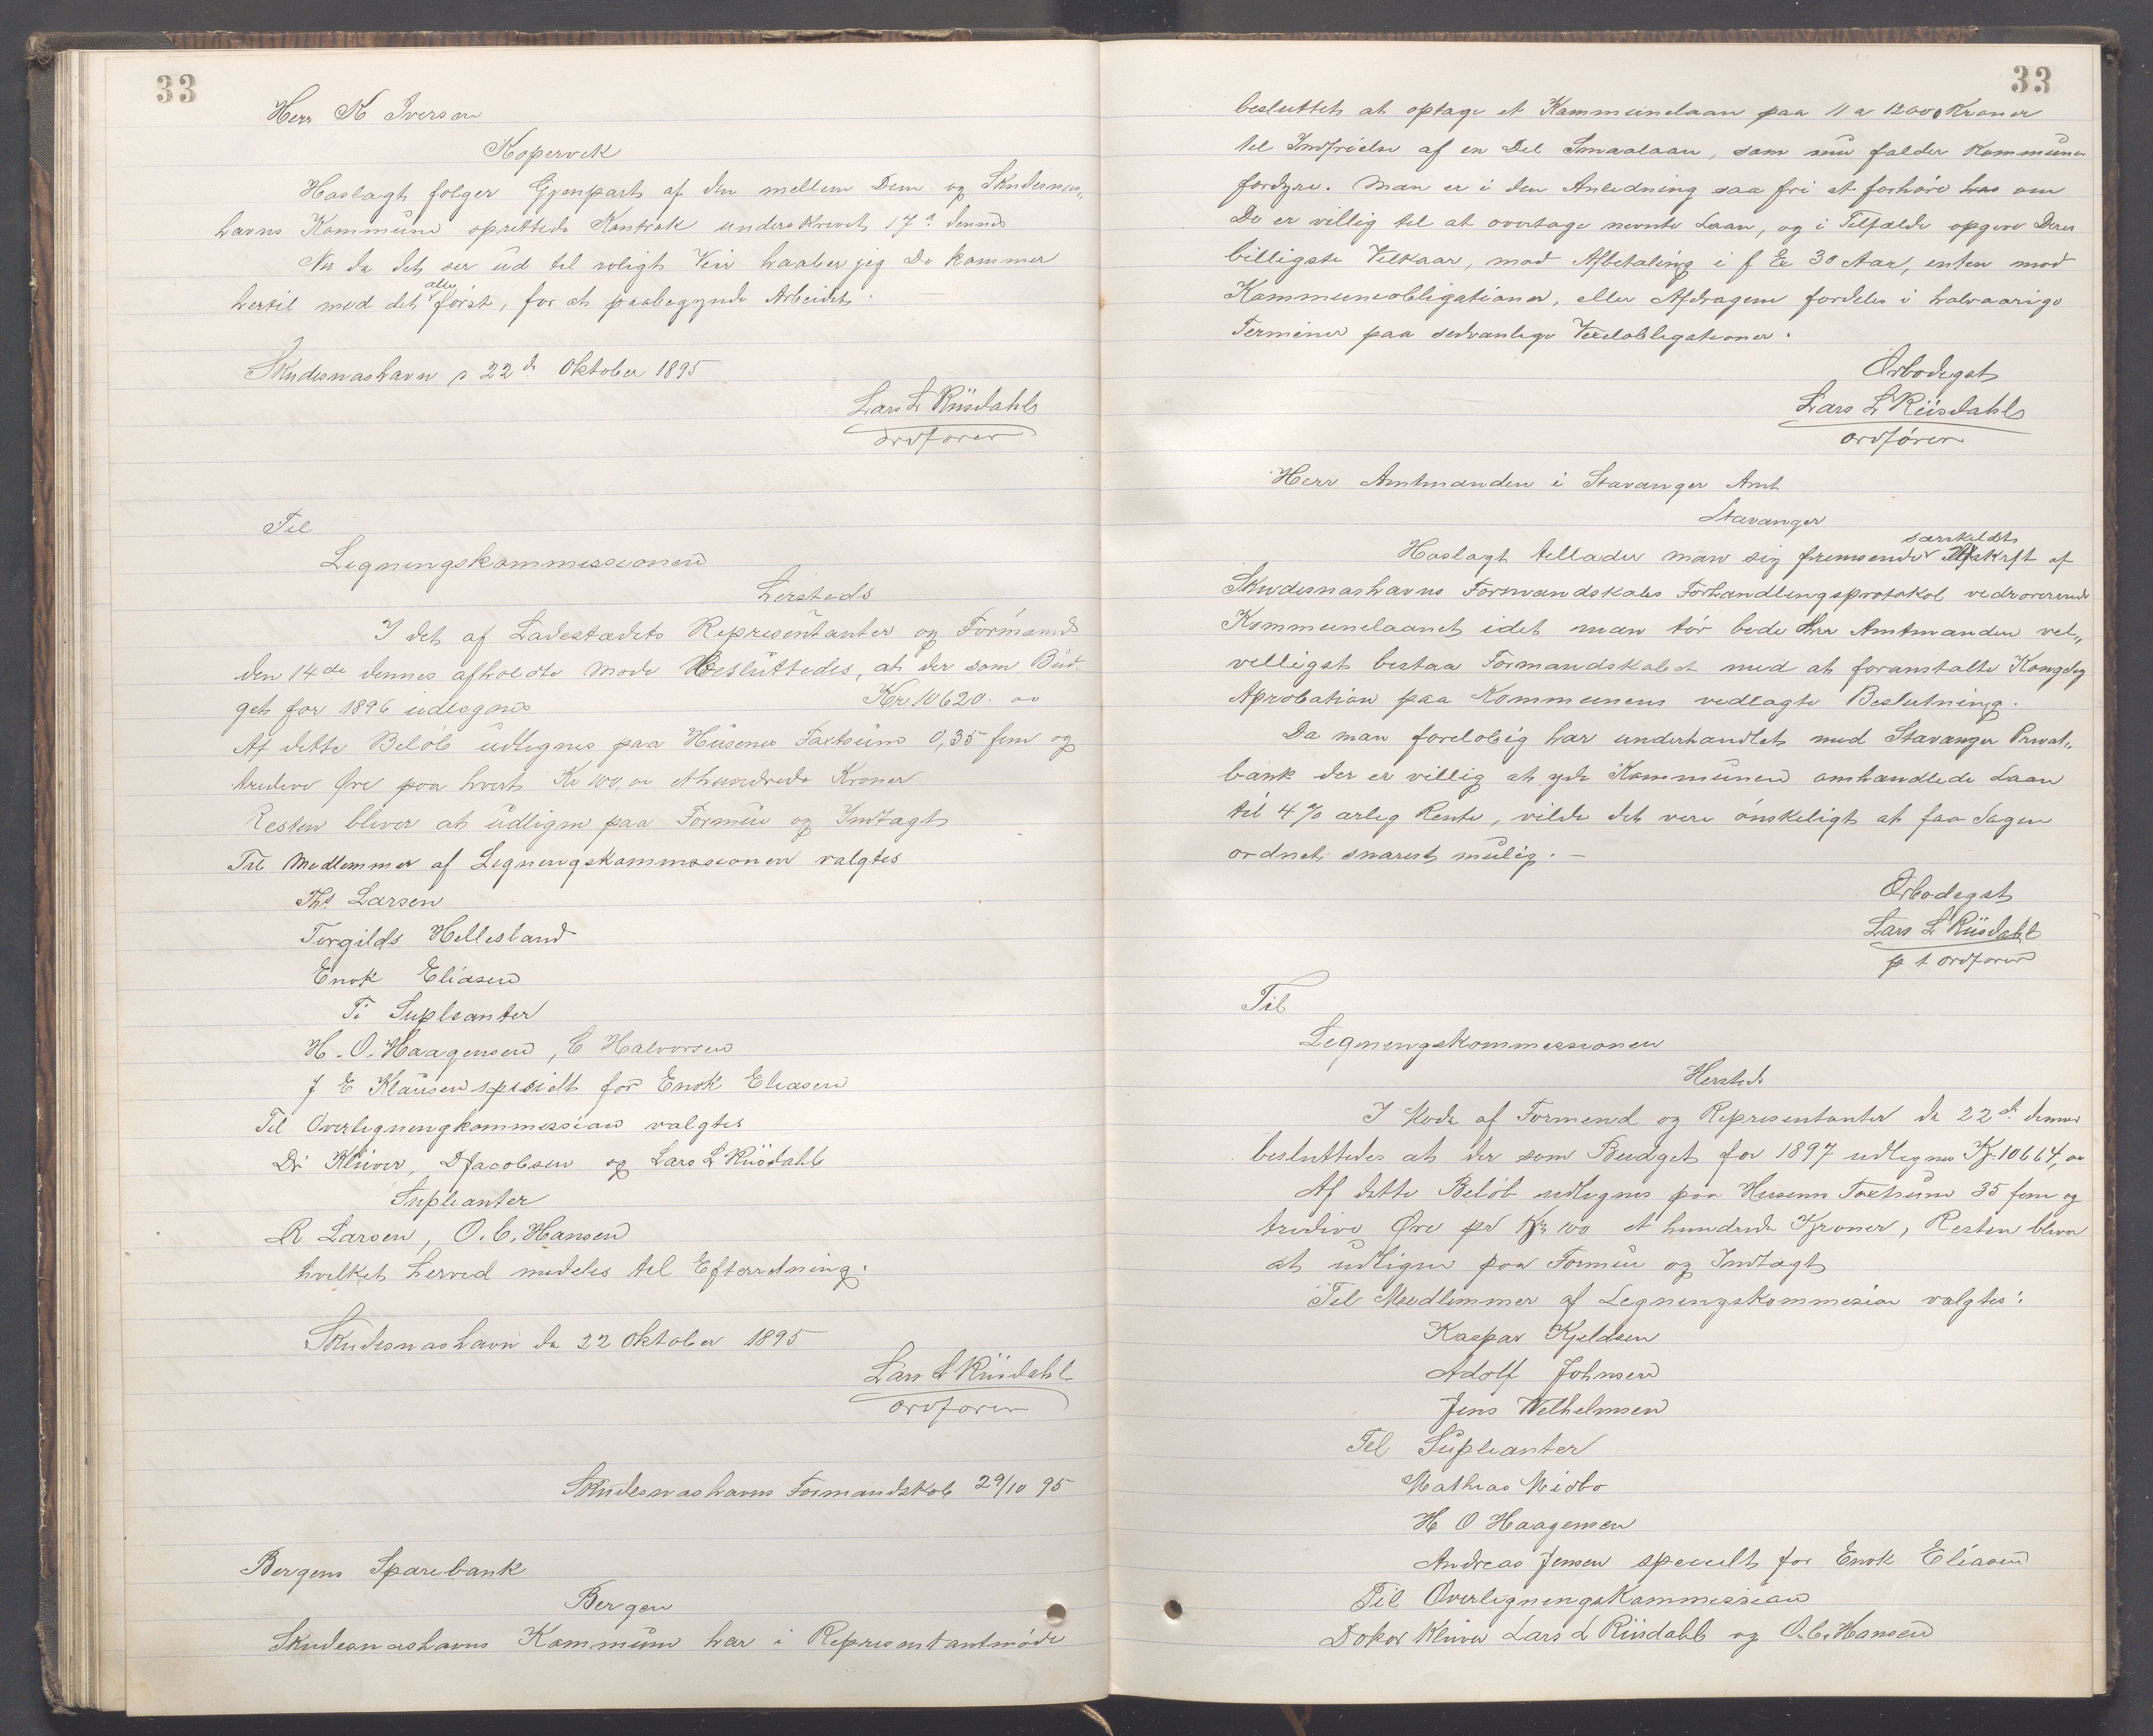 33
Herr K Iversen
Kopervik
Hoslagt følger Gjenpart af den mellem Dem og Skudesnes„
havns Kommune oprettede Kontrak underskrevet 17de dennes
Nu da det ser ud til roligt Veir haaber jeg De kommer
hertil med det aller først, for at paabegynde Arbeidet.
Skudesnashavn d 22de Oktober 1895
Lars L Riisdahl
ordforer
Til
Legningskommissionen
hersteds
I det af Ladestedets Representanter og Formænd
den 14de dennes afholdte Mode Besluttedes, at der som Bud
get for 1896 udlegnes Kr 10620. oo
Af dette Beløb udlegnes paa Husenes Taxtsum 0,35 fem og
tredeve Øre paa hvert Kr 100,oo ethundrede Kroner
Resten bliver at udligne paa Formue og Indtagt
Til Medlemmer af Legningskommissionen valgtes
Ths Larsen
Torgilds Hellesland
Enok Eliasen
Ti Supleanter
H. O. Haagensen, C Halvorsen
J E Klausen spesielt for Enok Eliasen
Til Overlegningkommission valgtes
Dr Kluver, D Jacobsen og Lars L Riisdahl
Supleanter
R Larsen, O. C. Hansen
hvilket herved medeles til Efterretning.
Skudesnashavn de 22 Oktober 1895
Lars L Riisdahl
ordforer
Skudesnashavns Formandskab 29/10 95
Bergens Sparebank
Bergen
Skudesnashavns Kommune har i Representantmøde
33
besluttet at optage et Kommunelaan paa 11 a 12000 Kroner
til Indfrielse af en Del Smaalaan, som nu falder Kommunen
fordyre. Man er i den Anledning saa fri at forhöre hos om
De er villig til at overtage nevnte Laan, og i Tilfælde opgive Deres
billigste Vilkaar, mod Afbetaling i f Ex 30 Aar, enten mod
Kommuneobligationer, eller Afdragene fordeles i halvaarige
Terminer paa sedvanlige Vexelobligationer.
Ærbødigst
Lars L Riisdahl
ordfører
Herr Amtmanden i Stavanger Amt
Stavanger
Hoslagt tellader man sig fremsende særskeldt Afskrft af
Skudesnashavns Formandskabs Forhandlingsprotokol vedrørerende
Kommunelaanet idet man tör bede Herr Amtmanden vel„
velligst bestaa Formandskabet med at foranstalte Kongelig
Aprobation paa Kommunens vedlagte Beslutning.
Da man forelobig har underhandlet med Stavanger Privat„
bank der er villig at yde Kommunen omhandlede Laan
til 4 % arlig Rente, vilde det vere önskeligt at faa Sagen
ordnet snarest mulig. —
Ærbodegst
Lars L Riisdahl
p t ordforer
Til
Legningskommessionen
Hersteds
I Mode af Formend og Representanter de 22de dennes
besluttedes at der som Budget for 1897 udlegnes Kr. 10664, oo
Af dette Beløb udlegnes paa Husenes Taxtsum 35 fem og
tredive Øre pr Kr 100 et hundrede Kroner, Resten bliver
at udligne paa Formue og Indtagt
Til Medlemmer af Legningskommesion valgtes:
Kaspar Kjeldsen
Adolf Johnsen
Jens Wilhelmsen
Til Supleanter
Mathias Midbo
H O Haagensen
Andreas Jensen specielt for Enok Eliasen
Til Overlegningskommission
Dokor Kluver Lars L Riisdahl og O. C. Hansen